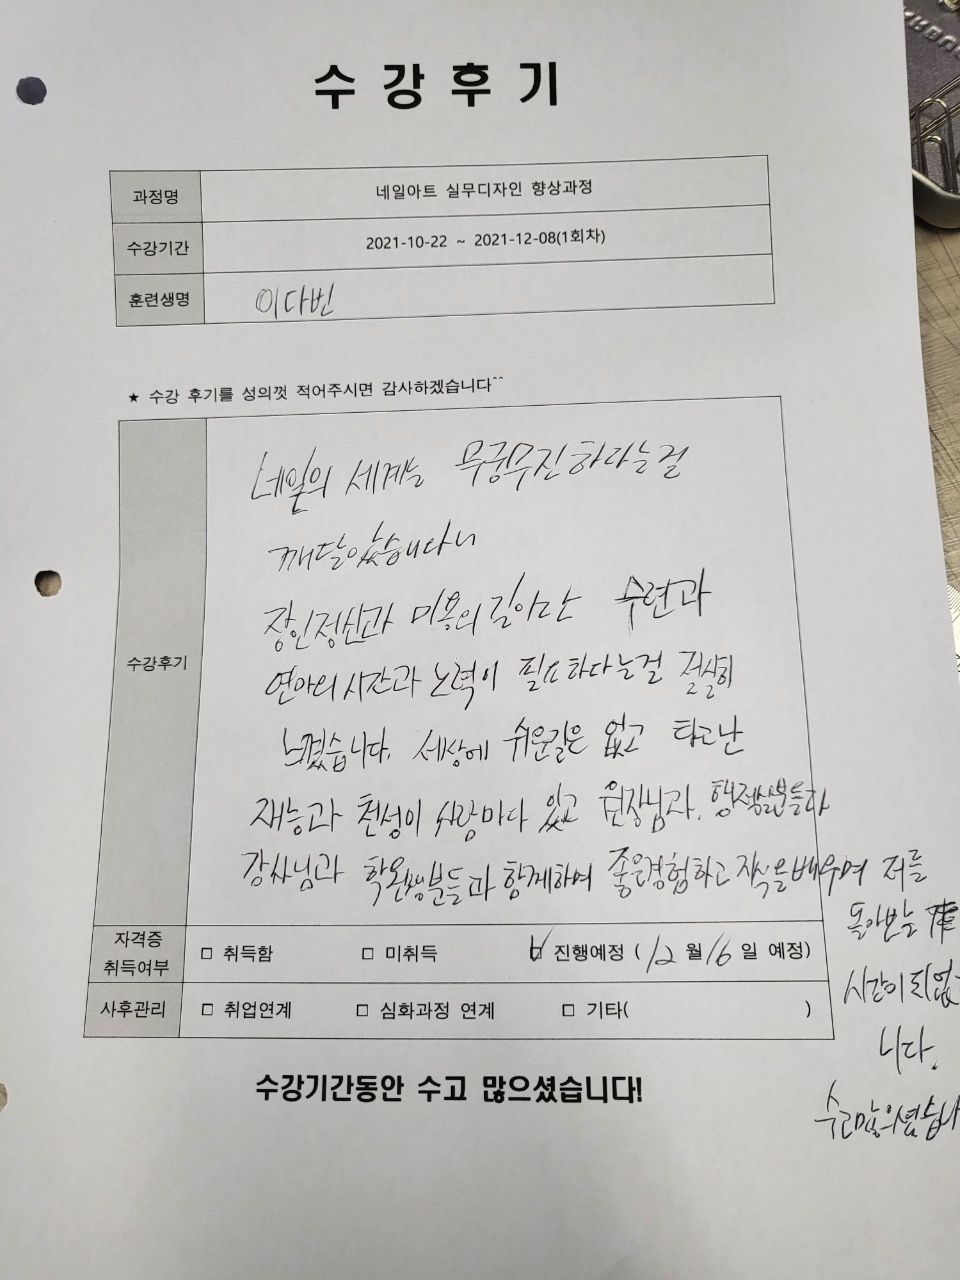 수 강 후 기
과정명 네일아트 실무디자인 향상과정
수강기간 2021-10-22 ~ 2021-12-08(1회차)
훈련생명 이다빈
★ 수강 후기를 성의껏 적어주시면 감사하겠습니다^^
수강후기
네일의 세계는 무궁무진하다는걸
깨달았습니다
장인정신과 미용의 길이란 수련과
연마의 시간과 노력이 필요하다는걸 절실히
느꼈습니다. 세상에 쉬운길은 없고 타고난
재능과 천성이 사람마다 있고 원장님과, 행정실분들과
강사님과 학원생분들과 함께하며 좋은경험하고 지식을배우며 저를
돌아보는
시간이 되었습
니다.
수고많으셨습니
자격증 취득여부 □ 취득함 □ 미취득 ☑ 진행예정 ( 12 월 16 일 예정)
사후관리 □ 취업연계 □ 심화과정 연계 □ 기타( )
수강기간동안 수고 많으셨습니다!